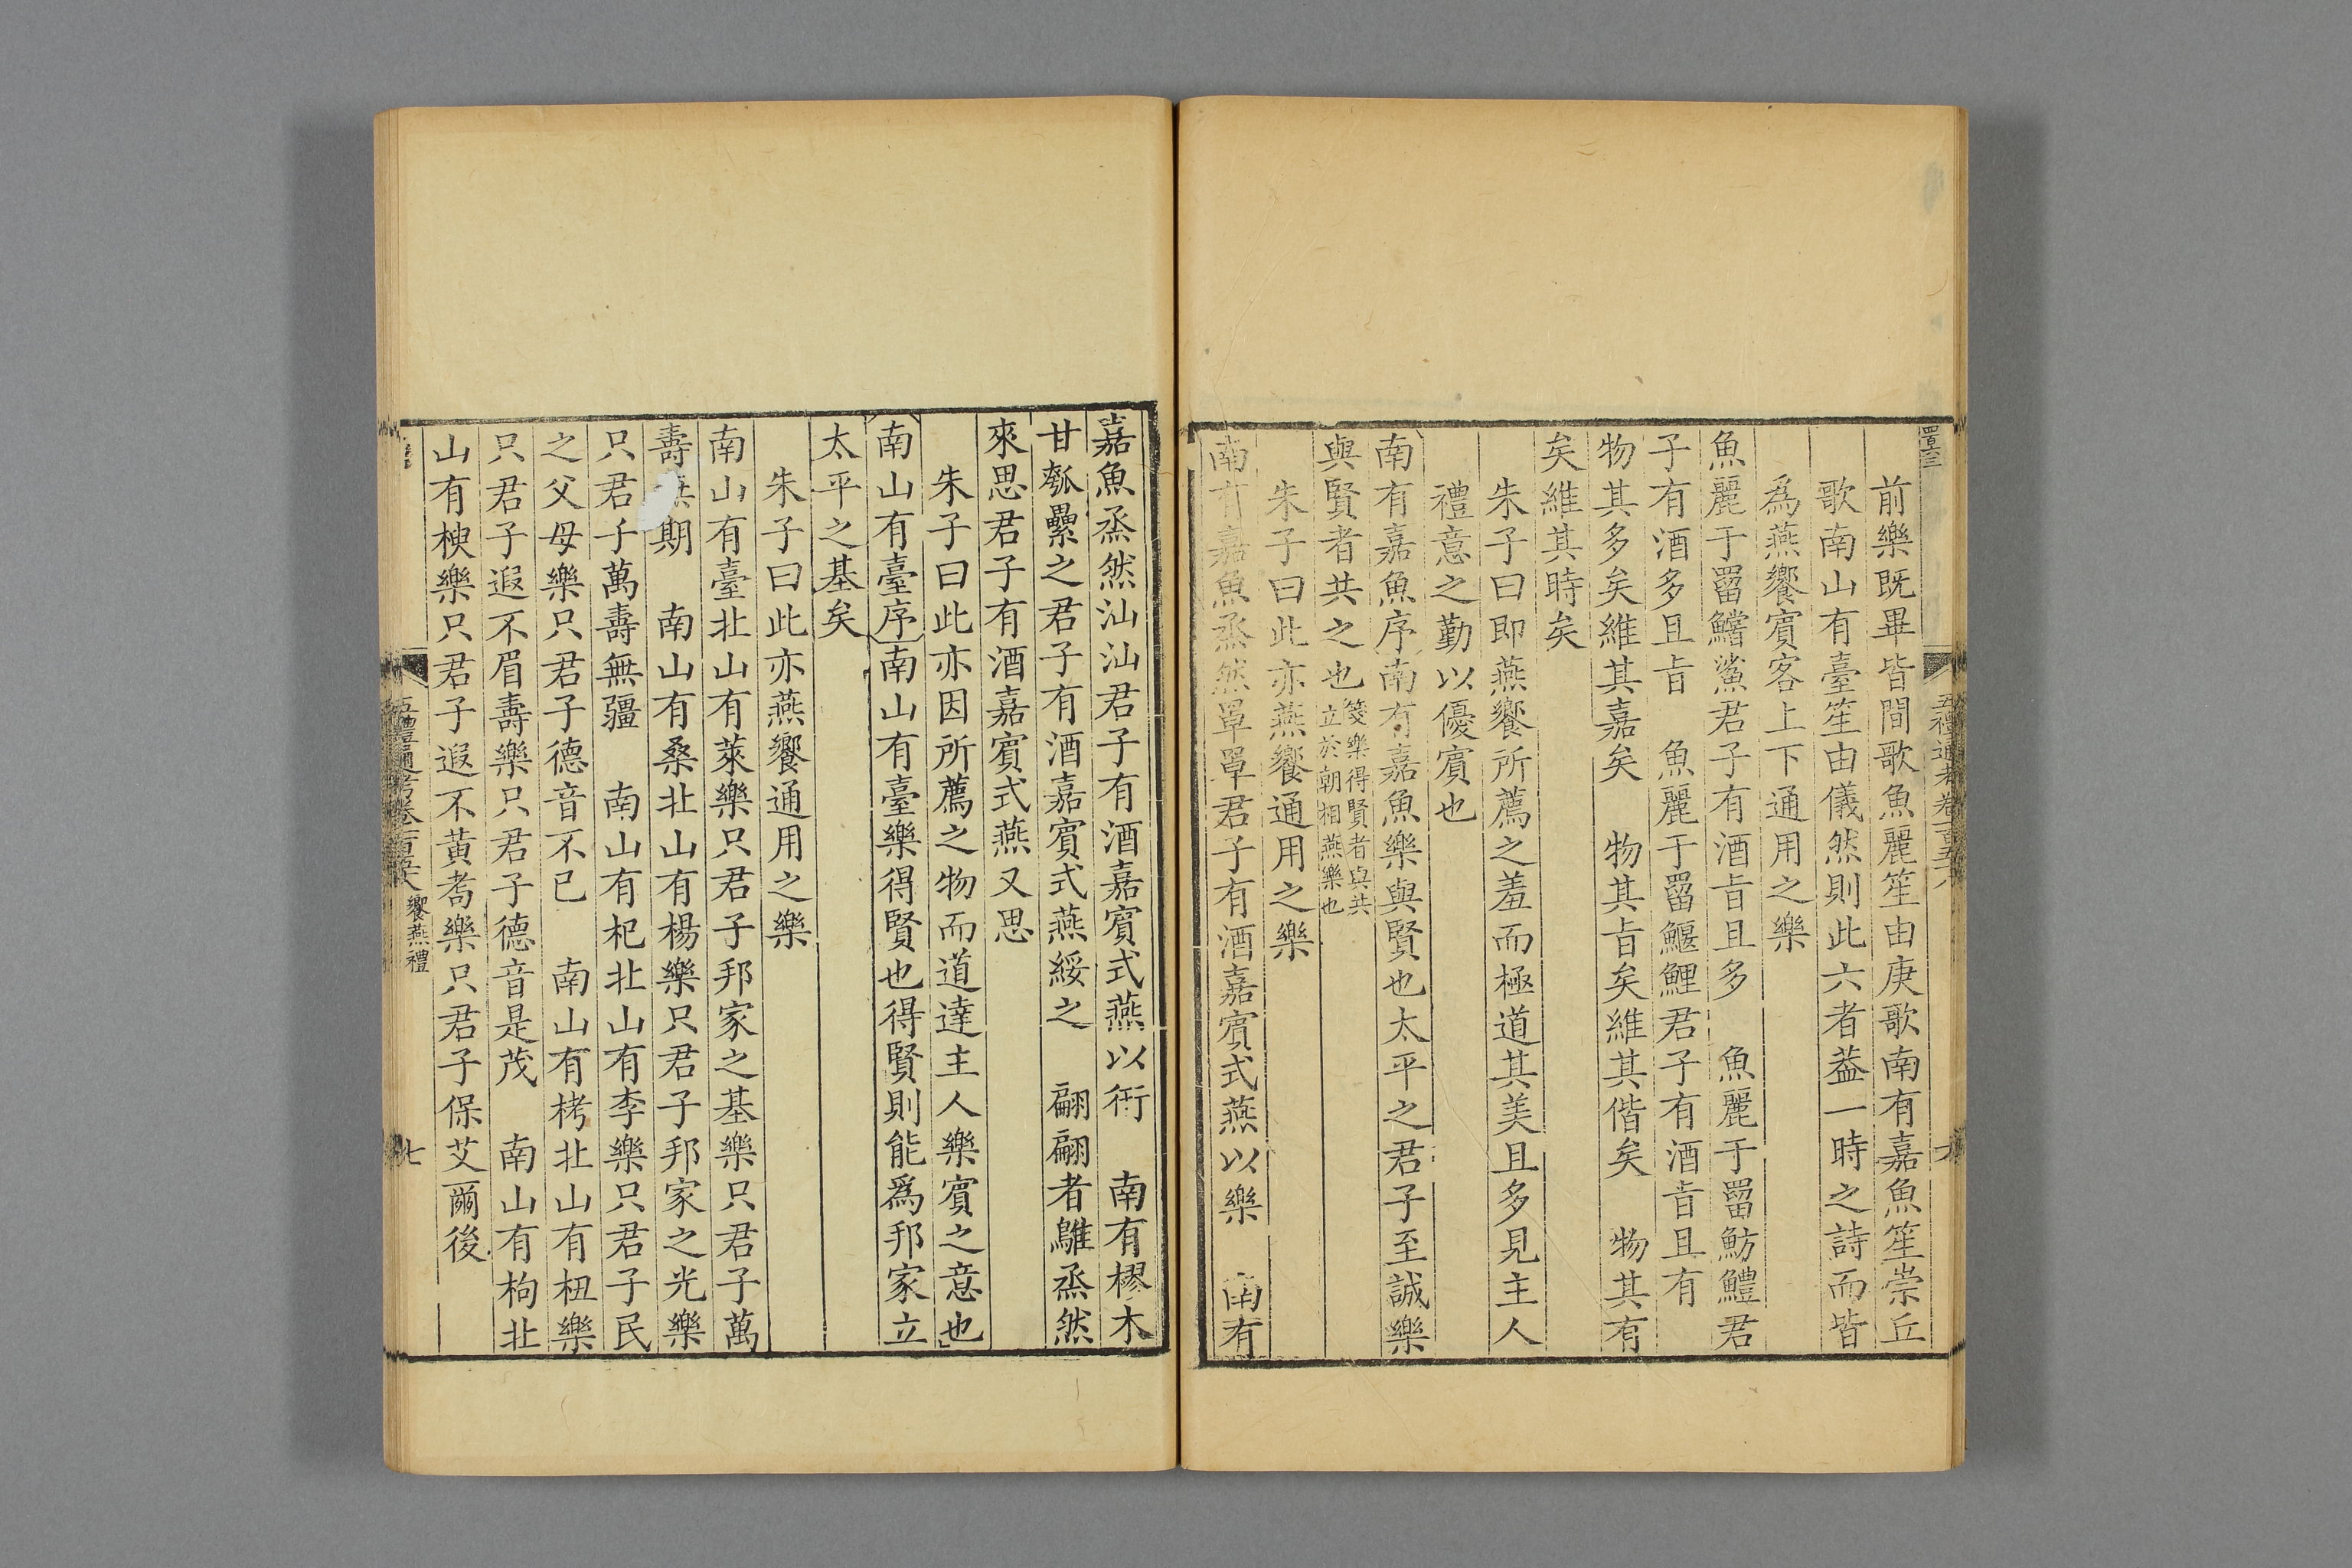 前樂既畢皆間歌魚麗笙由庚歌南有嘉魚笙崇丘
歌南山有臺笙由儀然則此六者葢一時之詩而皆
為燕饗賓客上下通用之樂
魚麗于罶鱨鯊君子有酒旨且多　魚麗于罶魴鱧君
子有酒多且旨　魚麗于罶鰋鯉君子有酒旨且有
物其多矣維其嘉矣　物其旨矣維其偕矣　物其有
矣維其時矣
朱子曰即燕饗所薦之羞而極道其美且多見主人
禮意之勤以優賓也
南有嘉魚序南有嘉魚樂與賢也太平之君子至誠樂
與賢者共之也箋樂得賢者與共
立於朝相燕樂也
朱子曰此亦燕饗通用之樂
南有嘉魚烝然罩罩君子有酒嘉賓式燕以樂　南有
嘉魚烝然汕汕君子有酒嘉賓式燕以衎　南有樛木
甘瓠纍之君子有酒嘉賓式燕綏之　翩翩者鵻烝然
來思君子有酒嘉賓式燕又思
朱子曰此亦因所薦之物而道達主人樂賓之意也
南山有臺序南山有臺樂得賢也得賢則能爲邦家立
太平之基矣
朱子曰此亦燕饗通用之樂
南山有臺北山有萊樂只君子邦家之基樂只君子萬
壽無期　南山有桑北山有楊樂只君子邦家之光樂
只君子萬壽無疆　南山有杞北山有李樂只君子民
之父母樂只君子德音不已　南山有栲北山有杻樂
只君子遐不眉壽樂只君子德音是茂　南山有枸北
山有楰樂只君子遐不黃耇樂只君子保艾爾後
五禮通考卷一百五十八 饗燕禮
七